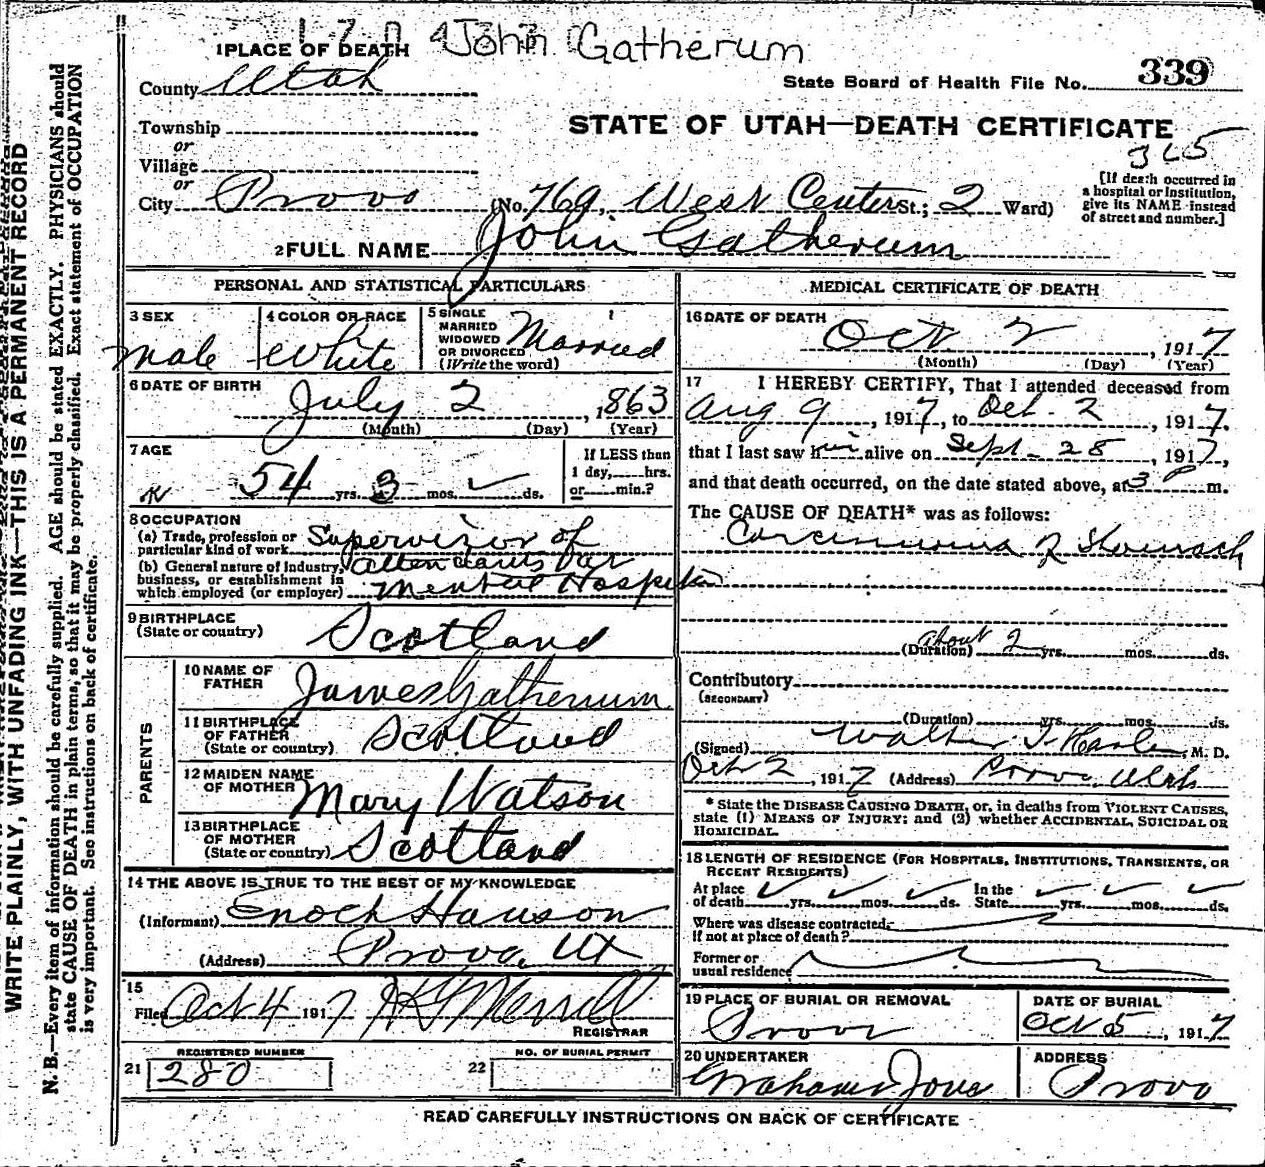 John Gatherum
1 PLACE OF DEATH
County Utah
State Board of Health File No. 339
Township
or
Village
or
STATE OF UTAH—DEATH CERTIFICATE
365
[If death occurred in
a hospital or institution,
give its NAME instead
of street and number.]
City Provo (No. 769, West Center St.; 2 Ward)
2 FULL NAME John Gatherum
PERSONAL AND STATISTICAL PARTICULARS
3 SEX
male
4 COLOR OR RACE
White
5 SINGLE
MARRIED
WIDOWED
OR DIVORCED
(Write the word)
Married
6 DATE OF BIRTH
July 2, 1863
(Month) (Day) (Year)
7 AGE
54 yrs. 3 mos. ds.
If LESS than
1 day, hrs.
or min.?
8 OCCUPATION
(a) Trade, profession or
particular kind of work Supervisor of
(b) General nature of industry,
business, or establishment in
which employed (or employer)
attendants
Mental Hospital
9 BIRTHPLACE
(State or country) Scotland
PARENTS
10 NAME OF
FATHER James Gatherum
11 BIRTHPLACE
OF FATHER
(State or country) Scotland
12 MAIDEN NAME
OF MOTHER Mary Watson
13 BIRTHPLACE
OF MOTHER
(State or country) Scotland
14 THE ABOVE IS TRUE TO THE BEST OF MY KNOWLEDGE
(Informant) Enoch Hanson
(Address) Provo, Ut
15
Filed Oct 4 1917 Merrill
REGISTRAR
21 REGISTERED NUMBER
280
22 NO. OF BURIAL PERMIT
MEDICAL CERTIFICATE OF DEATH
16 DATE OF DEATH
Oct 2, 1917
(Month) (Day) (Year)
17 I HEREBY CERTIFY, That I attended deceased from
Aug 9, 1917, to Oct. 2, 1917.
that I last saw him alive on Sept- 28, 1917,
and that death occurred, on the date stated above, at 3 P m.
The CAUSE OF DEATH* was as follows:
Carcinoma of Stomach
about
(Duration) 2 yrs. mos. ds.
Contributory
(SECONDARY)
(Duration) yrs. mos. ds.
(Signed) Walter T. M. D.
Oct 2, 1917 (Address) Provo, Utah
* State the DISEASE CAUSING DEATH, or, in deaths from VIOLENT CAUSES,
state (1) MEANS OF INJURY; and (2) whether ACCIDENTAL, SUICIDAL OR
HOMICIDAL.
18 LENGTH OF RESIDENCE (FOR HOSPITALS, INSTITUTIONS, TRANSIENTS, OR
RECENT RESIDENTS)
At place
of death yrs. mos. ds.
In the
State yrs. mos. ds.
Where was disease contracted,
If not at place of death?
Former or
usual residence
19 PLACE OF BURIAL OR REMOVAL
Provo
DATE OF BURIAL
Oct 5, 1917
20 UNDERTAKER
ADDRESS
Provo
READ CAREFULLY INSTRUCTIONS ON BACK OF CERTIFICATE
WRITE PLAINLY, WITH UNFADING INK—THIS IS A PERMANENT RECORD
N. B.—Every item of information should be carefully supplied. AGE should be stated EXACTLY. PHYSICIANS should
state CAUSE OF DEATH in plain terms, so that it may be properly classified. Exact statement of OCCUPATION
is very important. See instructions on back of certificate.